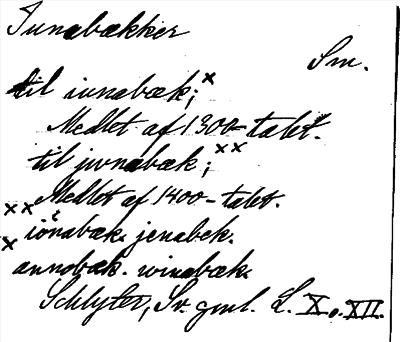 Iunabækker
Sm.
til iunabæk; x
Medlet af 1300-talet.
til jwnabæk; xx
Medlet af 1400-talet.
xx ionabæk. jenabek.
x annobæk. winabæk.
Schlyter, Sv. gml. L. X o. XII.